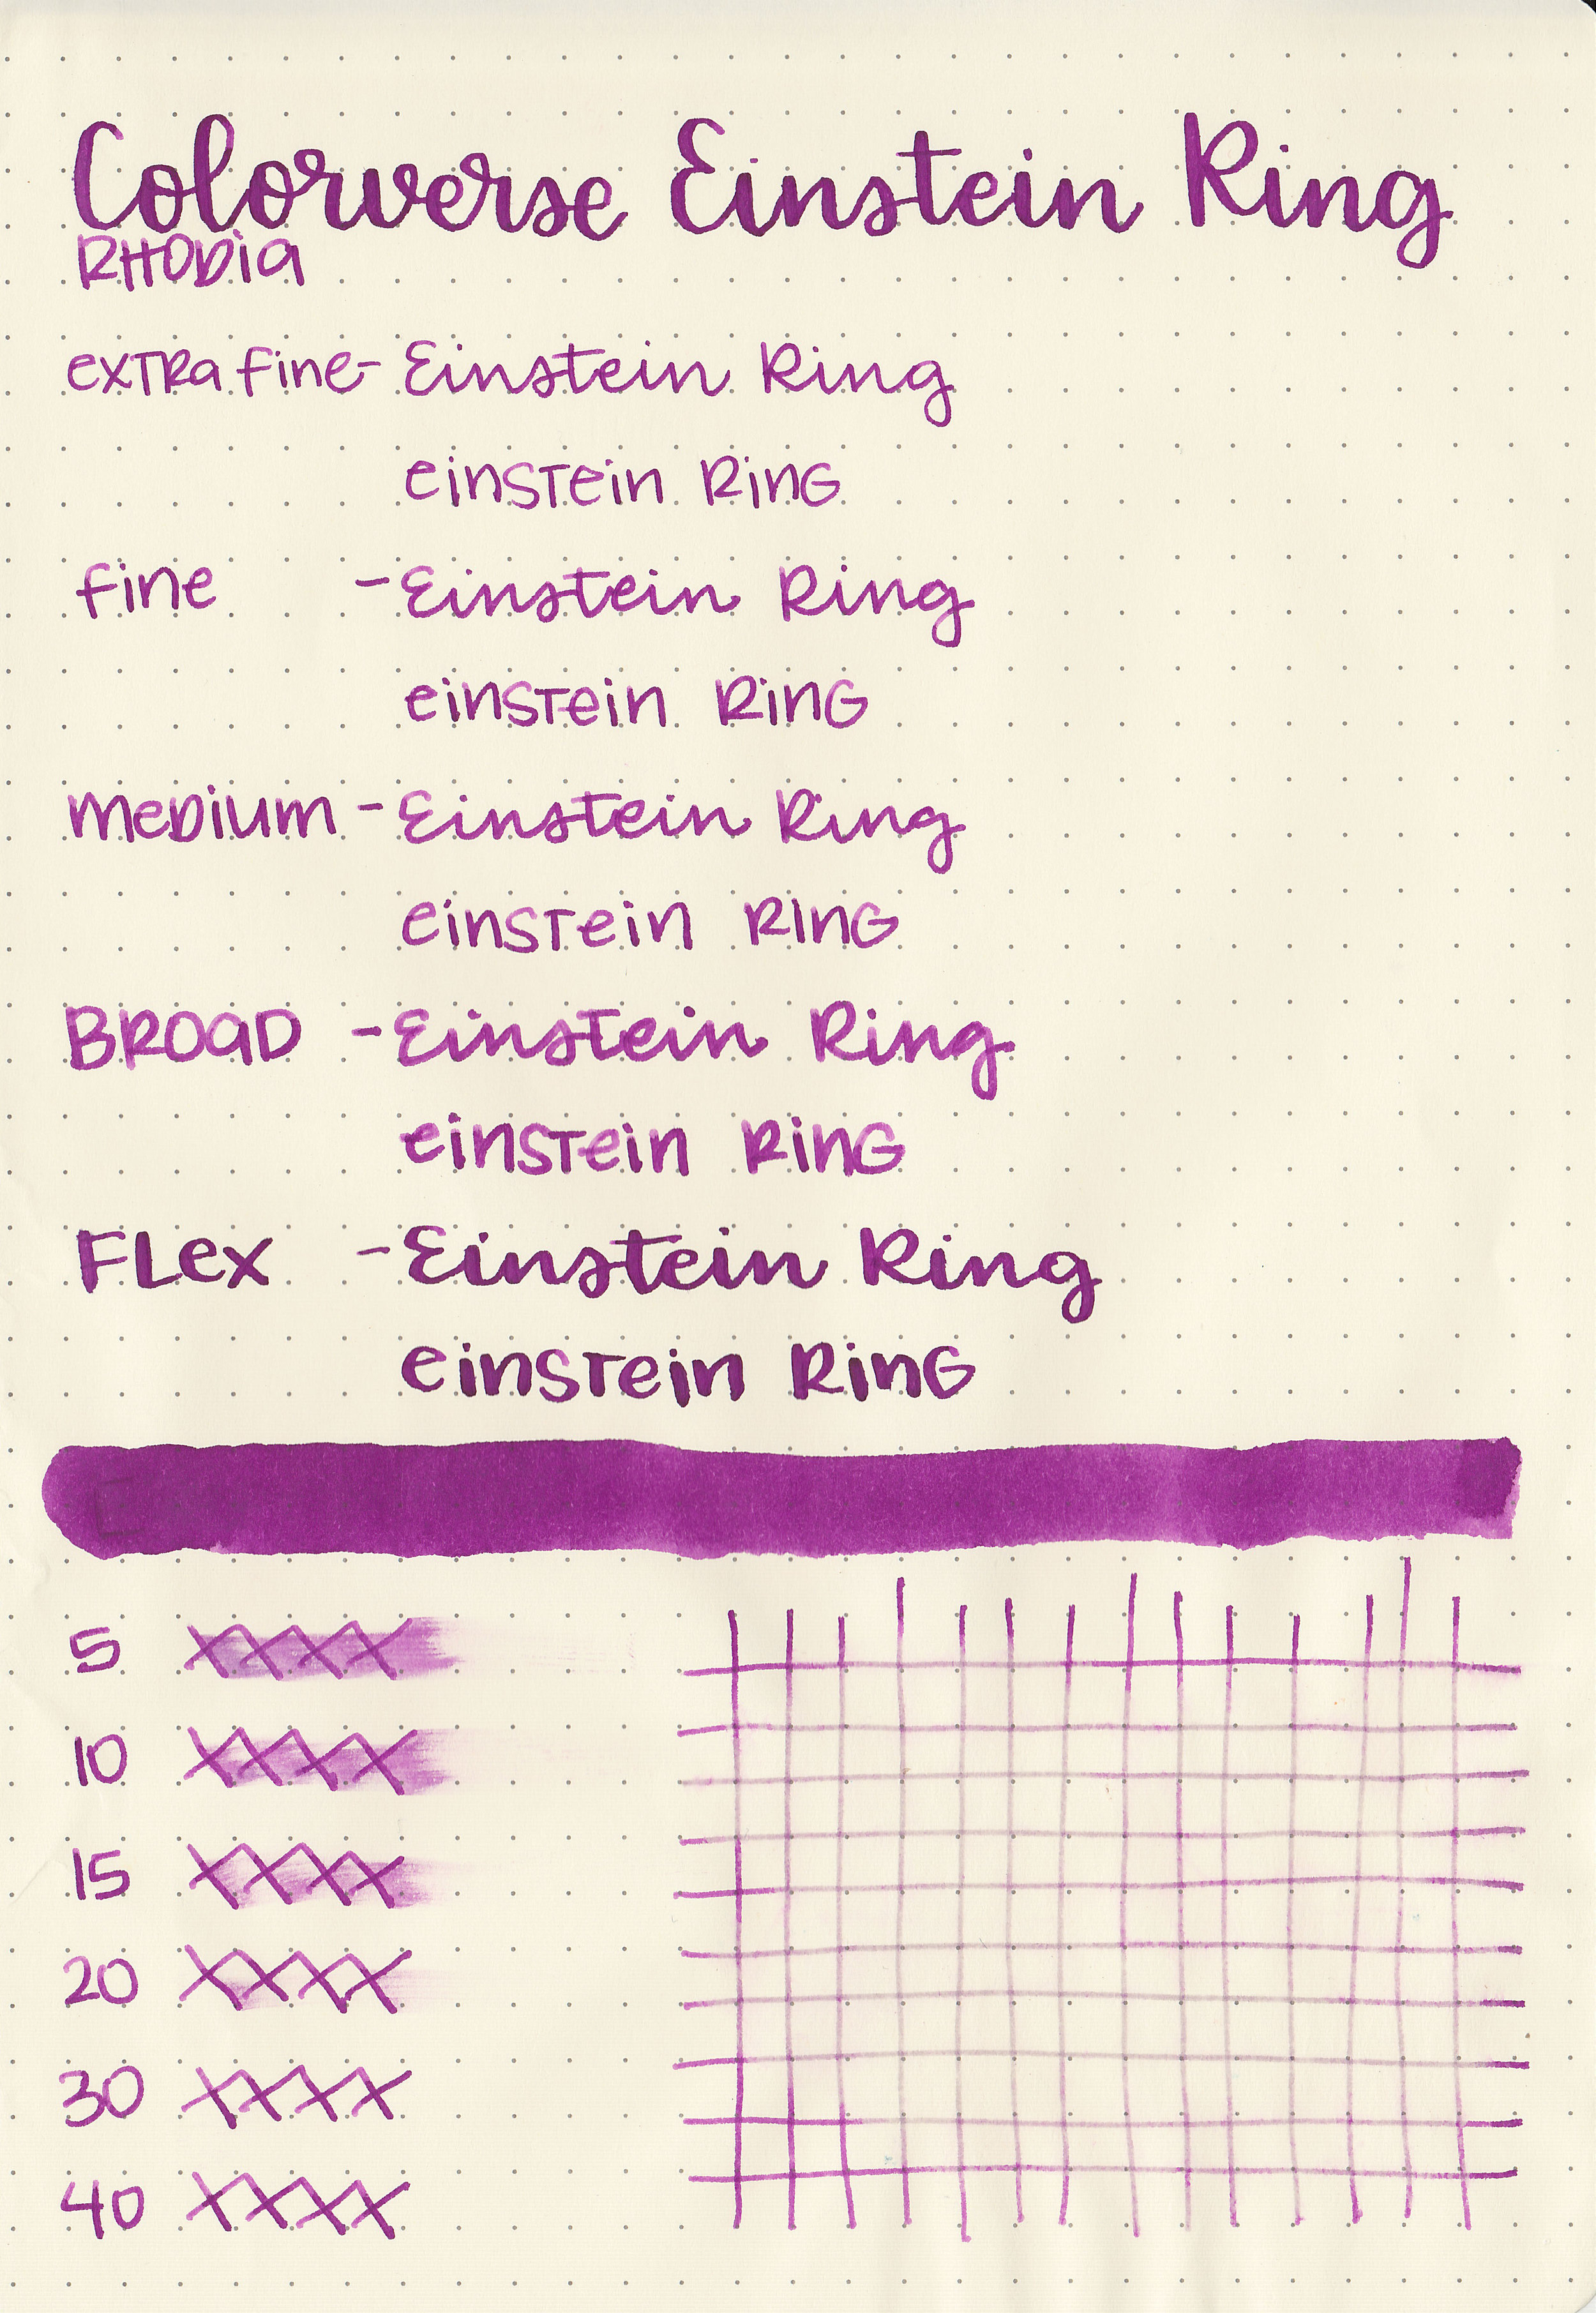 Colorverse Einstein Ring
RHODia
exTRa fine - Einstein Ring
einsTein RinG
fine - Einstein Ring
einsTein RinG
meDium - Einstein Ring
einsTein RinG
BROaD - Einstein Ring
einsTein RinG
FLex - Einstein Ring
einsTein RinG
5 XXXX
10 XXXX
15 XXXX
20 XXXX
30 XXXX
40 XXXX